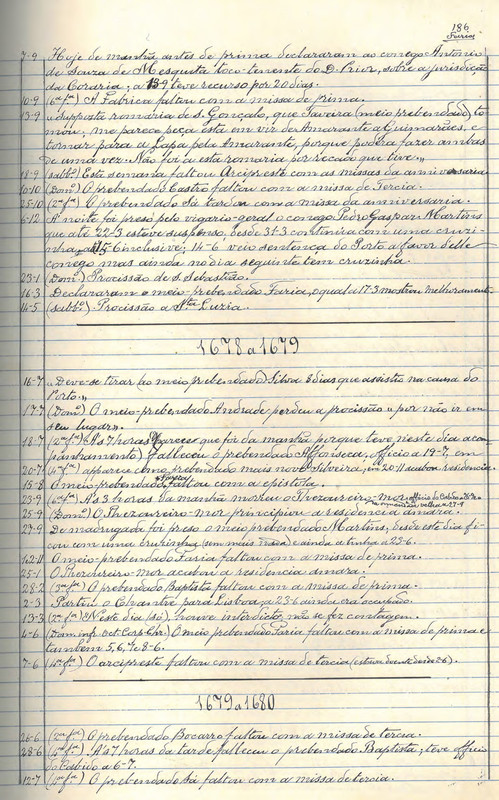 186
7-9 Hoje de manhã, antes de prima declararam ao conego Antonio
de Souza de Mesquita loco-tenente do D. Prior, sobre a jurisdição
da Coraria; a 13-9 teve recurso por 20 dias.
10-9 (6ª fª) A Fabrica faltou com a missa de prima.
13-9 "supposta romaria de S. Gonçalo, que Taveira (meio prebendado) to-
mou, me parece peça esta em vir de Amarante a Guimarães, e
tornar para a Lapa pela Amarante, porque podera fazer ambas
de uma vez. Não foi a esta romaria por recado que teve."
18-9 (sabbº) Esta semana faltou Arcipreste com as missas da anniversaria.
10-10 (Domº) O prebendado Castro faltou com a missa de Tercia.
25-10 (2ª fª) O prebendado Sá tardou com a missa da anniversaria.
6-12 A noite foi preso pelo vigario-geral o conego Pedro Gaspar Martins
que até 22-3 esteve suspenso, desde 31-3 continúa com uma cruzi-
nha, até 15-6 inclusive; 14-6 veio sentença do Porto a favor delle
conego mas ainda no dia seguinte tem cruzinha.
23-1 (Domº) Procissão de S. Sebastião.
16-3 Declararam o meio-prebendado Faria, o qual a 17-3 mostrou melhoramento.
14-5 (sabbº) Procissão a Stª Luzia.
1678 a 1679
16-7 "Deve-se tirar (ao meio prebendado) Silva 8 dias que assistiu na causa do
Porto."
17-7 (Domº) O meio-prebendado Andrade perdeu a procissão "por não ir em
seu lugar".
18-7 (2ª fª) Ás 7 horas (parece que foi da manhã porque teve neste dia acom-
panhamento) falleceu o prebendado Affonseca, officio a 19-7, em
20-7 (4ª fª) appareceu como prebendado mais novo Silveira, em 20-11 acabou residencia.
15-8 O meio-prebendado Faria faltou com a epistola.
23-9 (6ª fª) Ás 3 horas da manhã morreu o Thezoureiro-mor, officio do Cabido a 26-9
25-9 (Domº) O Thezoureiro-mor principiou a residencia amara.
27-9 De madrugada foi preso o meio prebendado Martins, desde este dia fi-
cou com uma cruzinha (sem mais nada) e ainda a tinha a 23-6.
O meio-prebendado Faria faltou com a missa de prima.
25-1 O Thezoureiro-mor acabou a residencia amara.
28-2 (3ª fª) O prebendado Baptista faltou com a missa de prima.
2-3 Partiu o Chantre para Lisboa, a 23-6 ainda era acusado.
13-3 (2ª fª) "Neste dia (só) houve interdicto, não se fez contagem.
4-6 (Dom. inf. Oct. Corp. Chr.) O meio prebendado Faria faltou com a missa de prima e
tambem 5, 6, 7 e 8-6.
7-6 (4ª fª) O arcipreste faltou com a missa de tercia (estava doente desde 2-6).
1679 a 1680
26-6 (2ª fª) O prebendado Bocarro faltou com a missa de tercia.
28-6 (4ª fª) Ás 7 horas da tarde falleceu o prebendado Baptista; teve officio
do Cabido a 6-7.
12-7 (4ª fª) O prebendado Sá faltou com a missa de tercia.